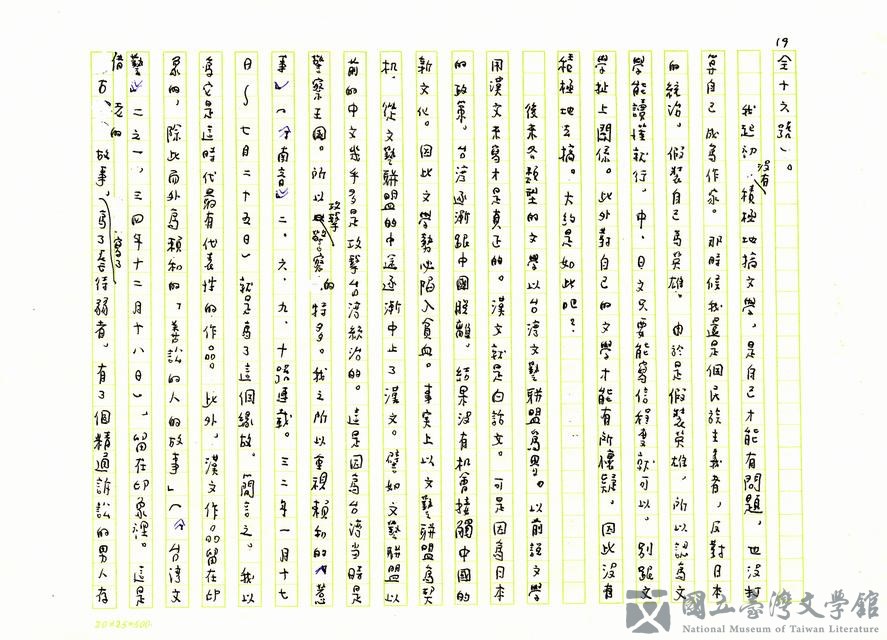 19
全十六頁）。
我起初沒有積極地搞文學，是自己才能有問題，也沒打
算自己成為作家。那時候我還是個民族主義者，反對日本
的統治，假裝自己為英雄。由於是假裝英雄，所以認為文
學能讀懂就行，中、日文只要能寫信程度就可以。別跟文
學扯上關係。此外對自己的文學才能有所懷疑。因此沒有
積極地去搞。大約是如此吧？
後來各類型的文學以台灣文藝聯盟為界。以前說文學
用漢文來寫才是真正的。漢文就是白話文。可是因為日本
的政策，台灣逐漸跟中國脫離，結果沒有机會接觸中國的
新文化。因此文學勢必陷入貧血。事实上以文藝聯盟為契
机，從文藝聯盟的中途逐漸中止了漢文。譬如文藝聯盟以
前的中文幾乎多是攻擊台灣統治的。這是因為台灣当時是
警察王國。所以攻擊警察的特多。我之所以重視賴和的〈惹
事〉（《南音》二、六、九、十號連載。三二年一月十七
日～七月二十五日）就是為了這個緣故。簡言之，我以
為它是這時代最有代表性的作品。此外，漢文作品留在印
象的，除此而外為賴和的「善訟的人的故事」（《台灣文
藝》二之一，三四年十二月十八日），留在印象裡。這是
借古的故事，寫了 善待弱者，有了個精通訴訟的男人存
20×25=500
國立臺灣文學館
National Museum of Taiwan Literature